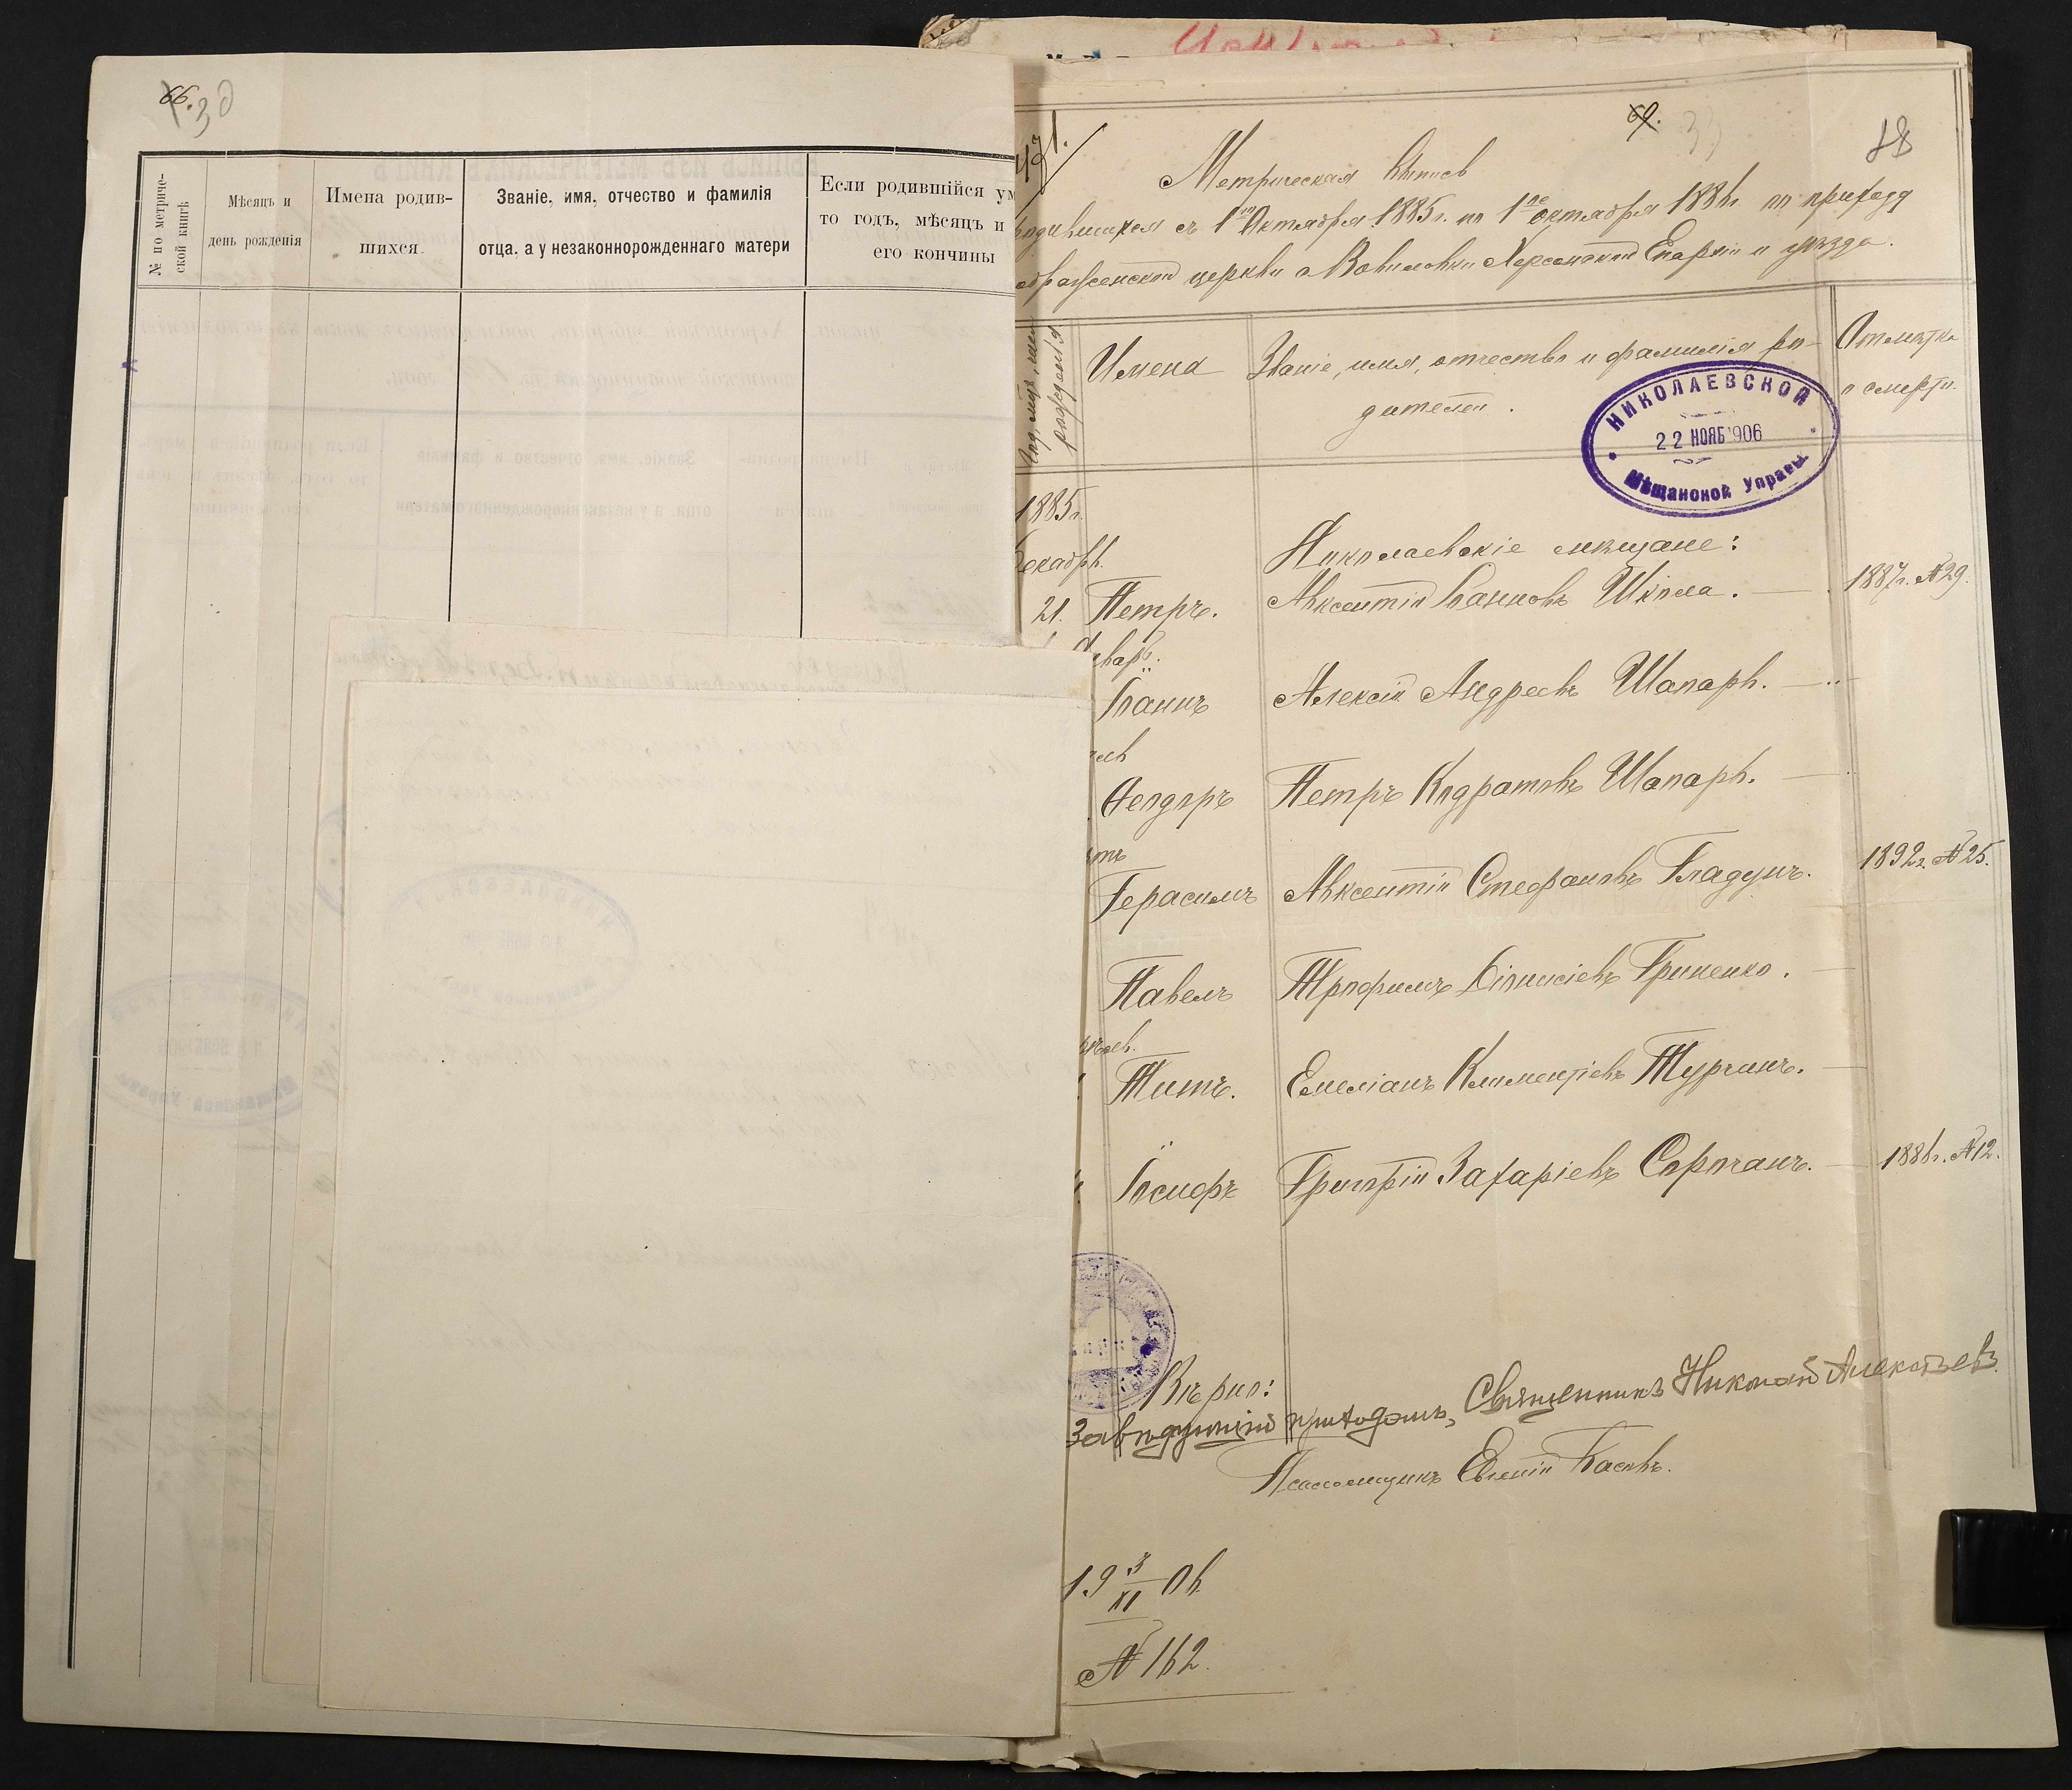 66.
30
№ по метриче-
ской книгѣ
Мѣсяцъ и
день рожденія
Имена родив-
шихся.
Званіе, имя, отчество и фамилія
отца, а у незаконнорожденнаго матери
Если родившійся ум
то годъ, мѣсяцъ и
его кончины
69.
33
18
Метрическая выпись
родившихся съ 1го Октября 1885г. по 1ое октября 1886г. по приходу
ображенской церкви с Вавиловки Херсонской Епархіи и уѣзда.
рожденія
Имена
Званіе, имя, отчество и фамилія ро-
дителей.
Отмѣтка
о смерти.
НИКОЛАЕВСКОЙ
22 НОЯБ 906
Мѣщанской Управы
1885г.
Декабрь.
Николаевскіе мѣщане:
21. Петръ. Авксентій Іоанновъ Школа. — 1887г. №29.
Январь.
Іоаннъ Алексій Андреевъ Шапарь. —
Ѳеодоръ Петръ Кодратовъ Шапарь. —
Герасимъ Авксентій Стефановъ Гладунъ. 1892г. №25.
Павелъ Трофимъ Діонисіевъ Гриненко. —
Титъ. Емеліанъ Климентіевъ Турчанъ. —
Іосифъ Григорій Захаріевъ Сорочанъ. — 1886г. №12.
Вѣрно:
Завѣдующій приходомъ, Священникъ Николай Алексѣевъ
Псаломщикъ Евгеній Басовъ.
19 3/XI 06
№ 162.